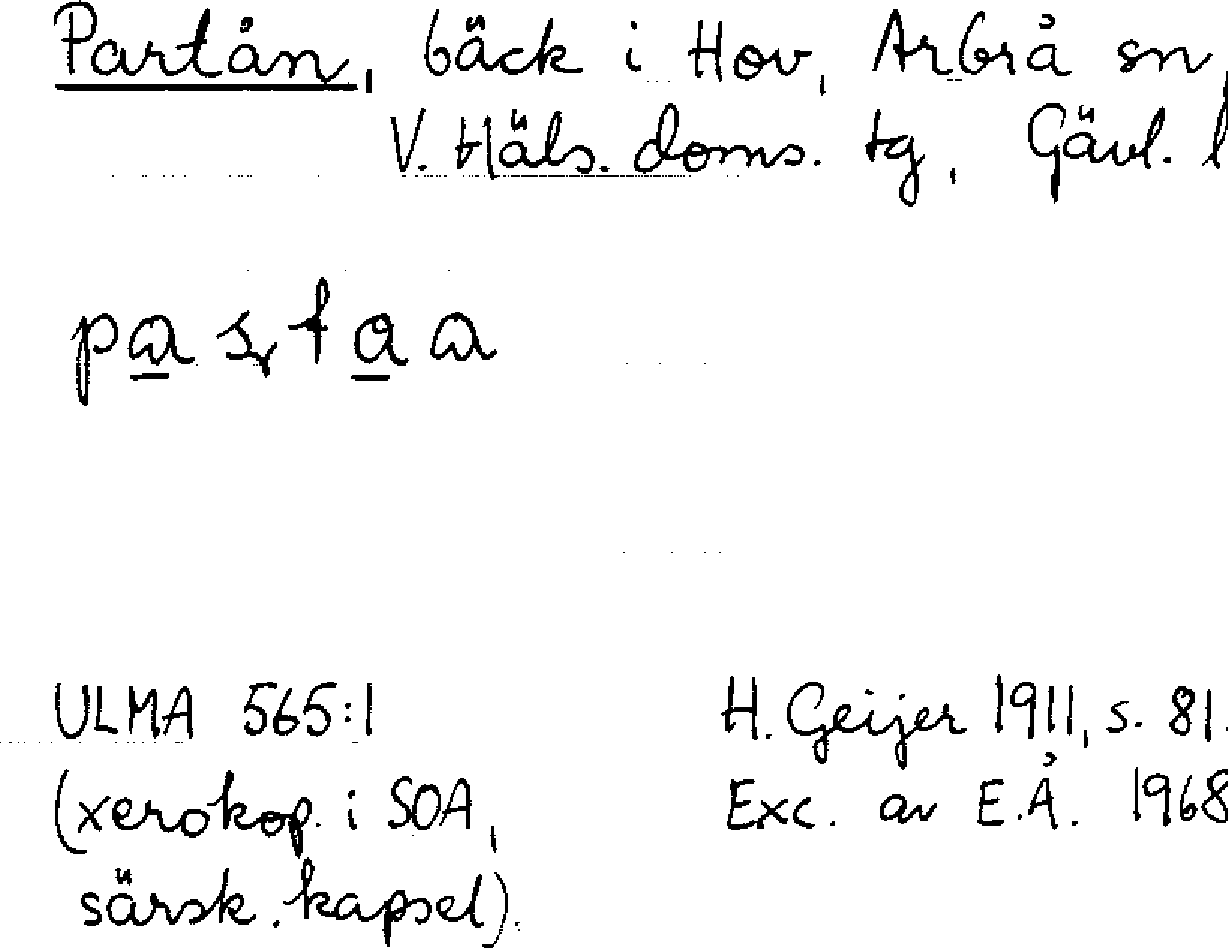 Partån, bäck i Hov, Arbrå sn,
V. Häls. doms. tg, Gävl. l
ULMA 565:1
(xerokop. i SOA,
särsk. kapsel).
H. Geijer 1911, s. 81.
Exc. av E.Å. 1968